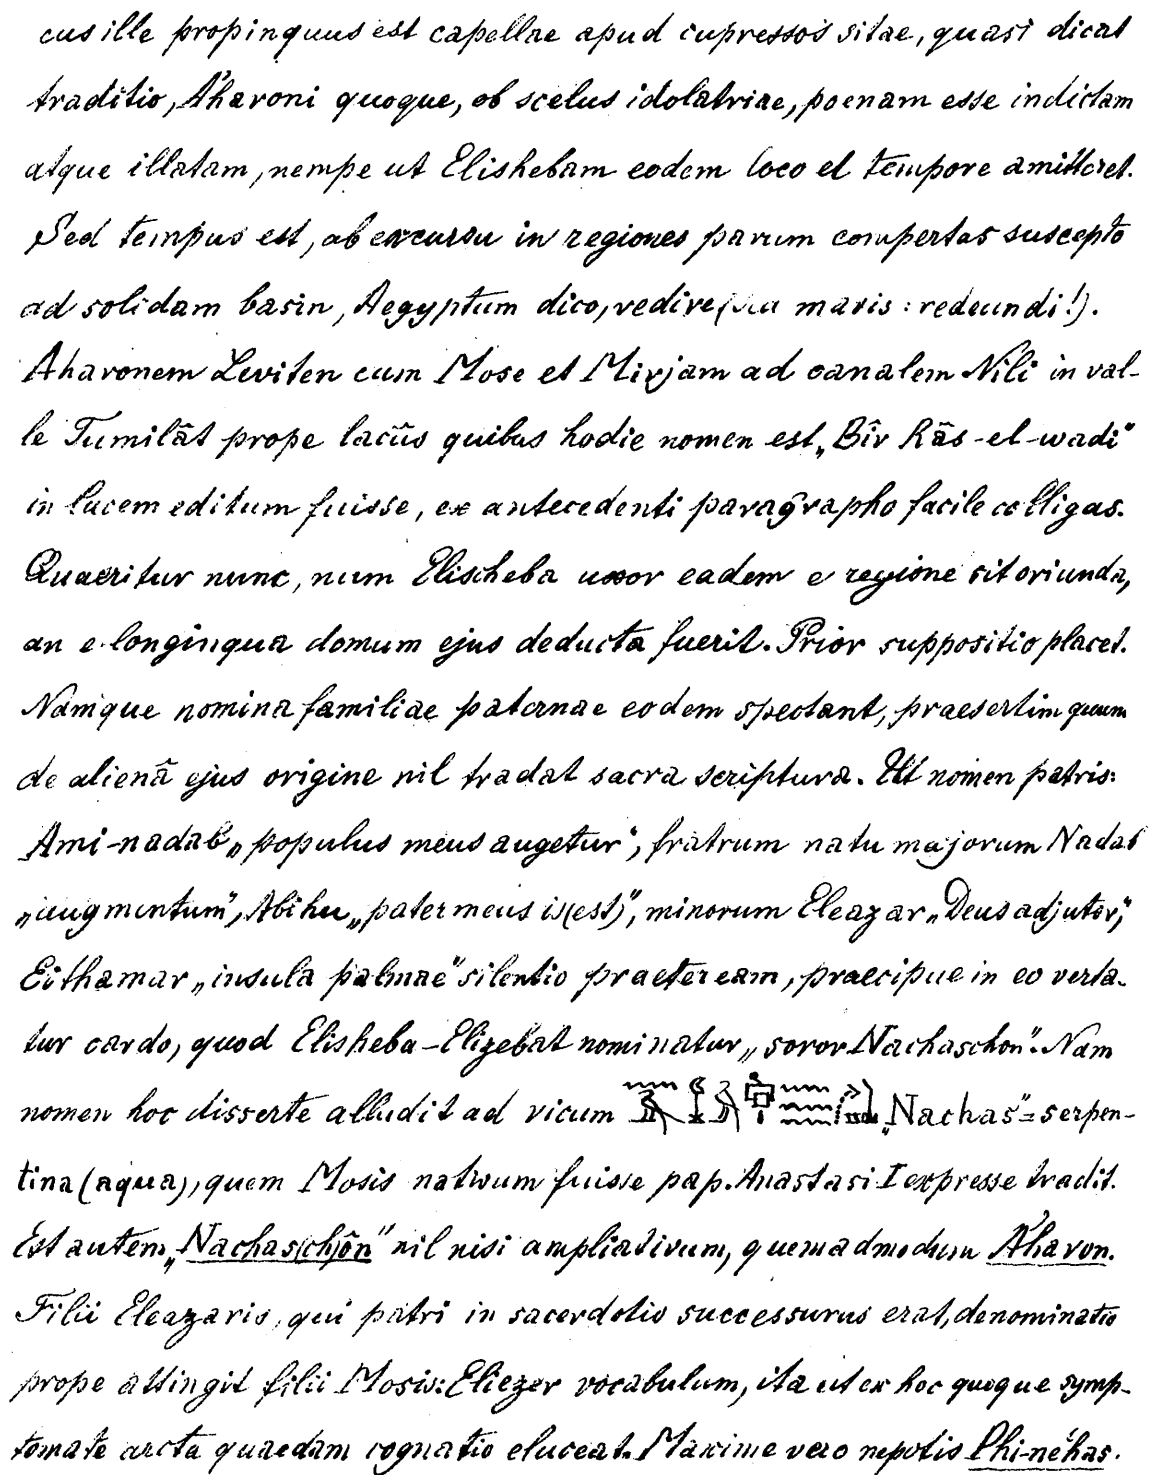 cus ille propinquus est capellae apud cupressos sitae, quasi dicat
traditio, A'haroni quoque, ob scelus idolatriae, poenam esse indictam
atque illatam, nempe ut Elishebam eodem loco et tempore amitteret.
Sed tempus est, ab excursu in regiones parum compertas suscepto
ad solidam basin, Aegyptum dico, redire( maris: redeundi!).
Aharonem Leviten cum Mose et Mirjam ad canalem Nili in val-
le Tumilât prope lacûs quibus hodie nomen est „Bîr Râs-el-wadi“
in lucem editum fuisse, ex antecedenti paragrapho facile colligas.
Quaeritur nunc, num Elischeba uxor eadem e regione sit oriunda,
an e longinqua domum ejus deducta fuerit. Prior suppositio placet.
Namque nomina familiae paternae eodem spectant, praesertim quum
de alienâ ejus origine nil tradat sacra scriptura. Ut nomen patris:
Ami-nadab „populus meus augetur“, fratrum natu majorum Nadab
„augmentum“, Abihu „pater meus is(est)“, minorum Eleazar „Deus adjutor“,
Eithamar „insula palmae“ silentio praeteream, praecipue in eo verta-
tur cardo, quod Elisheba-Elizebat nominatur „soror Nachaschon“. Nam
nomen hoc disserte alludit ad vicum „Nachas“=serpen-
tina (aqua), quem Mosis nativum fuisse pap. Anastasi I expresse tradit.
Est autem „Nachas(ch)ôn“ nil nisi ampliativum, quemadmodum A'haron.
Filii Eleazaris, qui patri in sacerdotio successurus erat, denominatio
prope attingit filii Mosis: Eliezer vocabulum, ita ut ex hoc quoque symp-
tomate arcta quaedam cognatio eluceat. Maxime vero nepotis Phi-nehas.